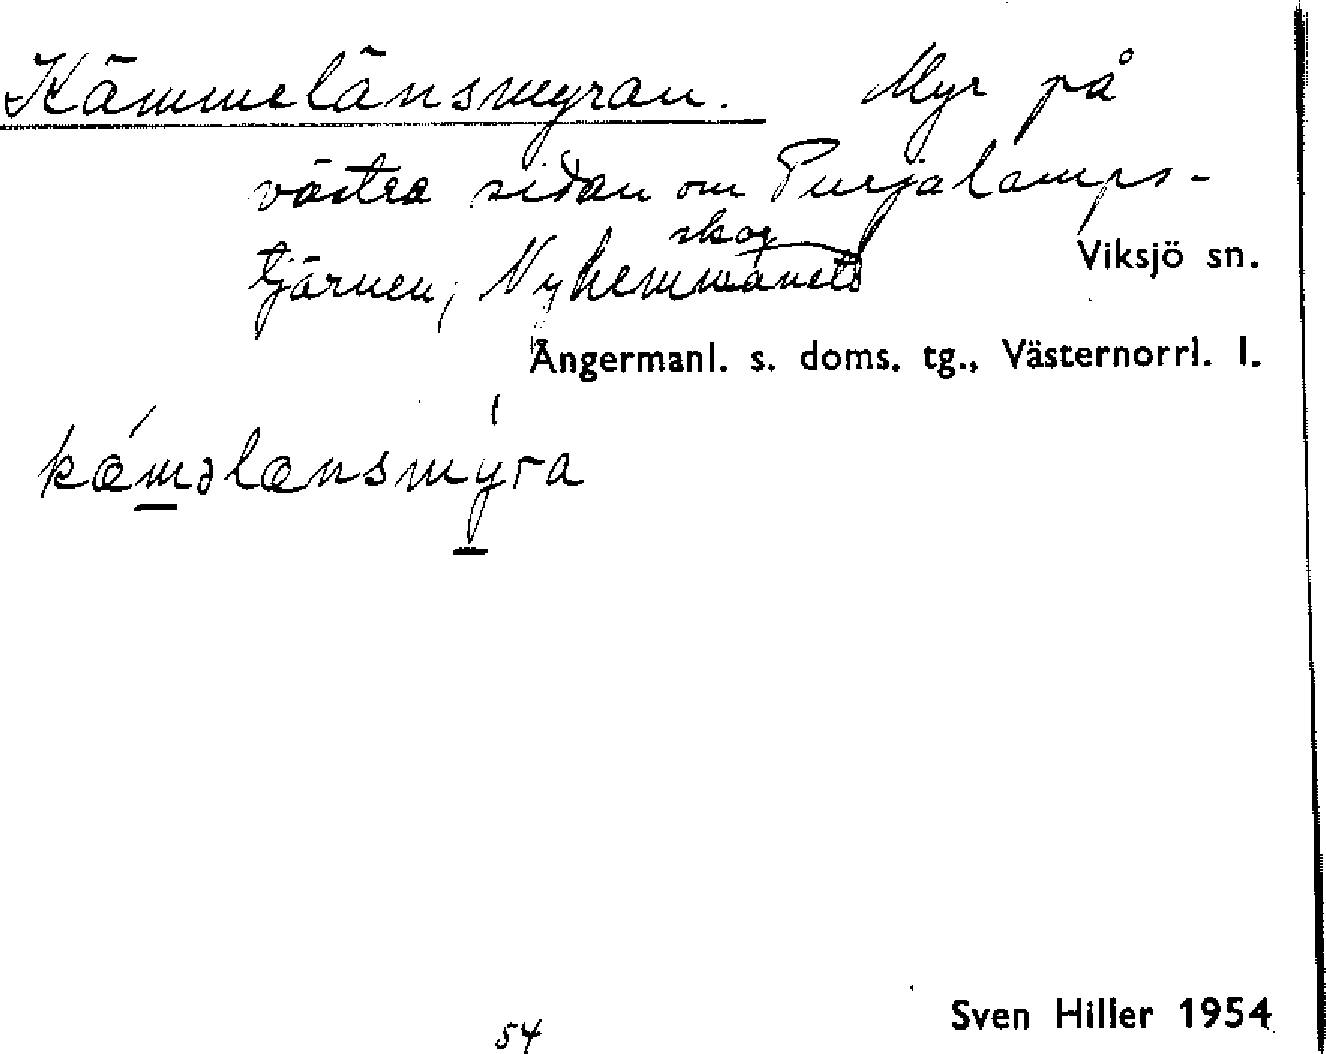 Kämmelänsmyran. Myr på
västra sidan om Purjalamps-
tjärnen, Nyhemmanets skog
Viksjö sn.
Ångermanl. s. doms. tg., Västernorrl. l.
kǽməlænsmýra
Sven Hiller 1954
54